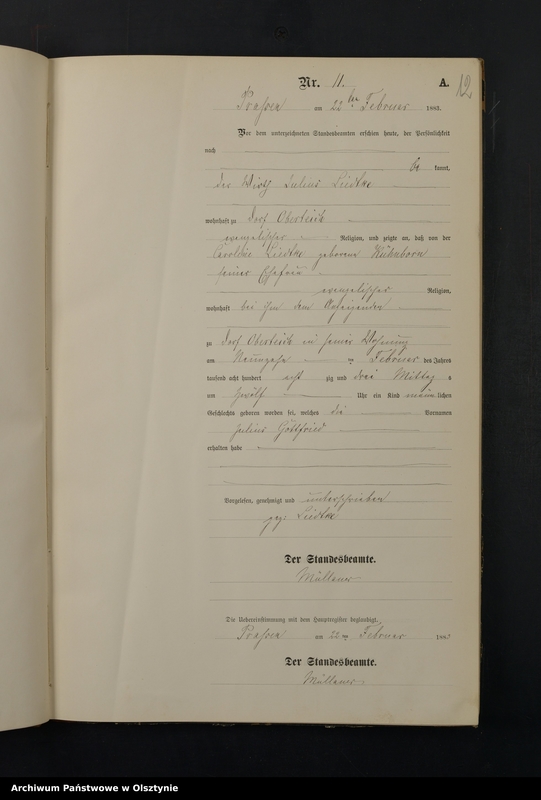 Nr. 11. A. 12
am 22ten Februar 1883.
Vor dem unterzeichneten Standesbeamten erschien heute, der Persönlichkeit
nach
be kannt,
der Wirth Julius Liedtke
wohnhaft zu Dorf
evangelischer Religion, und zeigte an, daß von der
Caroline Liedtke geborene
seiner Ehefrau
evangelischer Religion,
wohnhaft bei ihm dem Anzeigenden
zu Dorf in seiner Wohnung
am Februar des Jahres
tausend acht hundert acht zig und drei Mittag s
um zwölf Uhr ein Kind männ lichen
Geschlechts geboren worden sei, welches die Vornamen
Julius Gottfried
erhalten habe
Vorgelesen, genehmigt und unterschrieben
gez: Liedtke
Der Standesbeamte.
Die Uebereinstimmung mit dem Hauptregister beglaubigt.
am 22 Februar 1883
Der Standesbeamte.
Archiwum Państwowe w Olsztynie